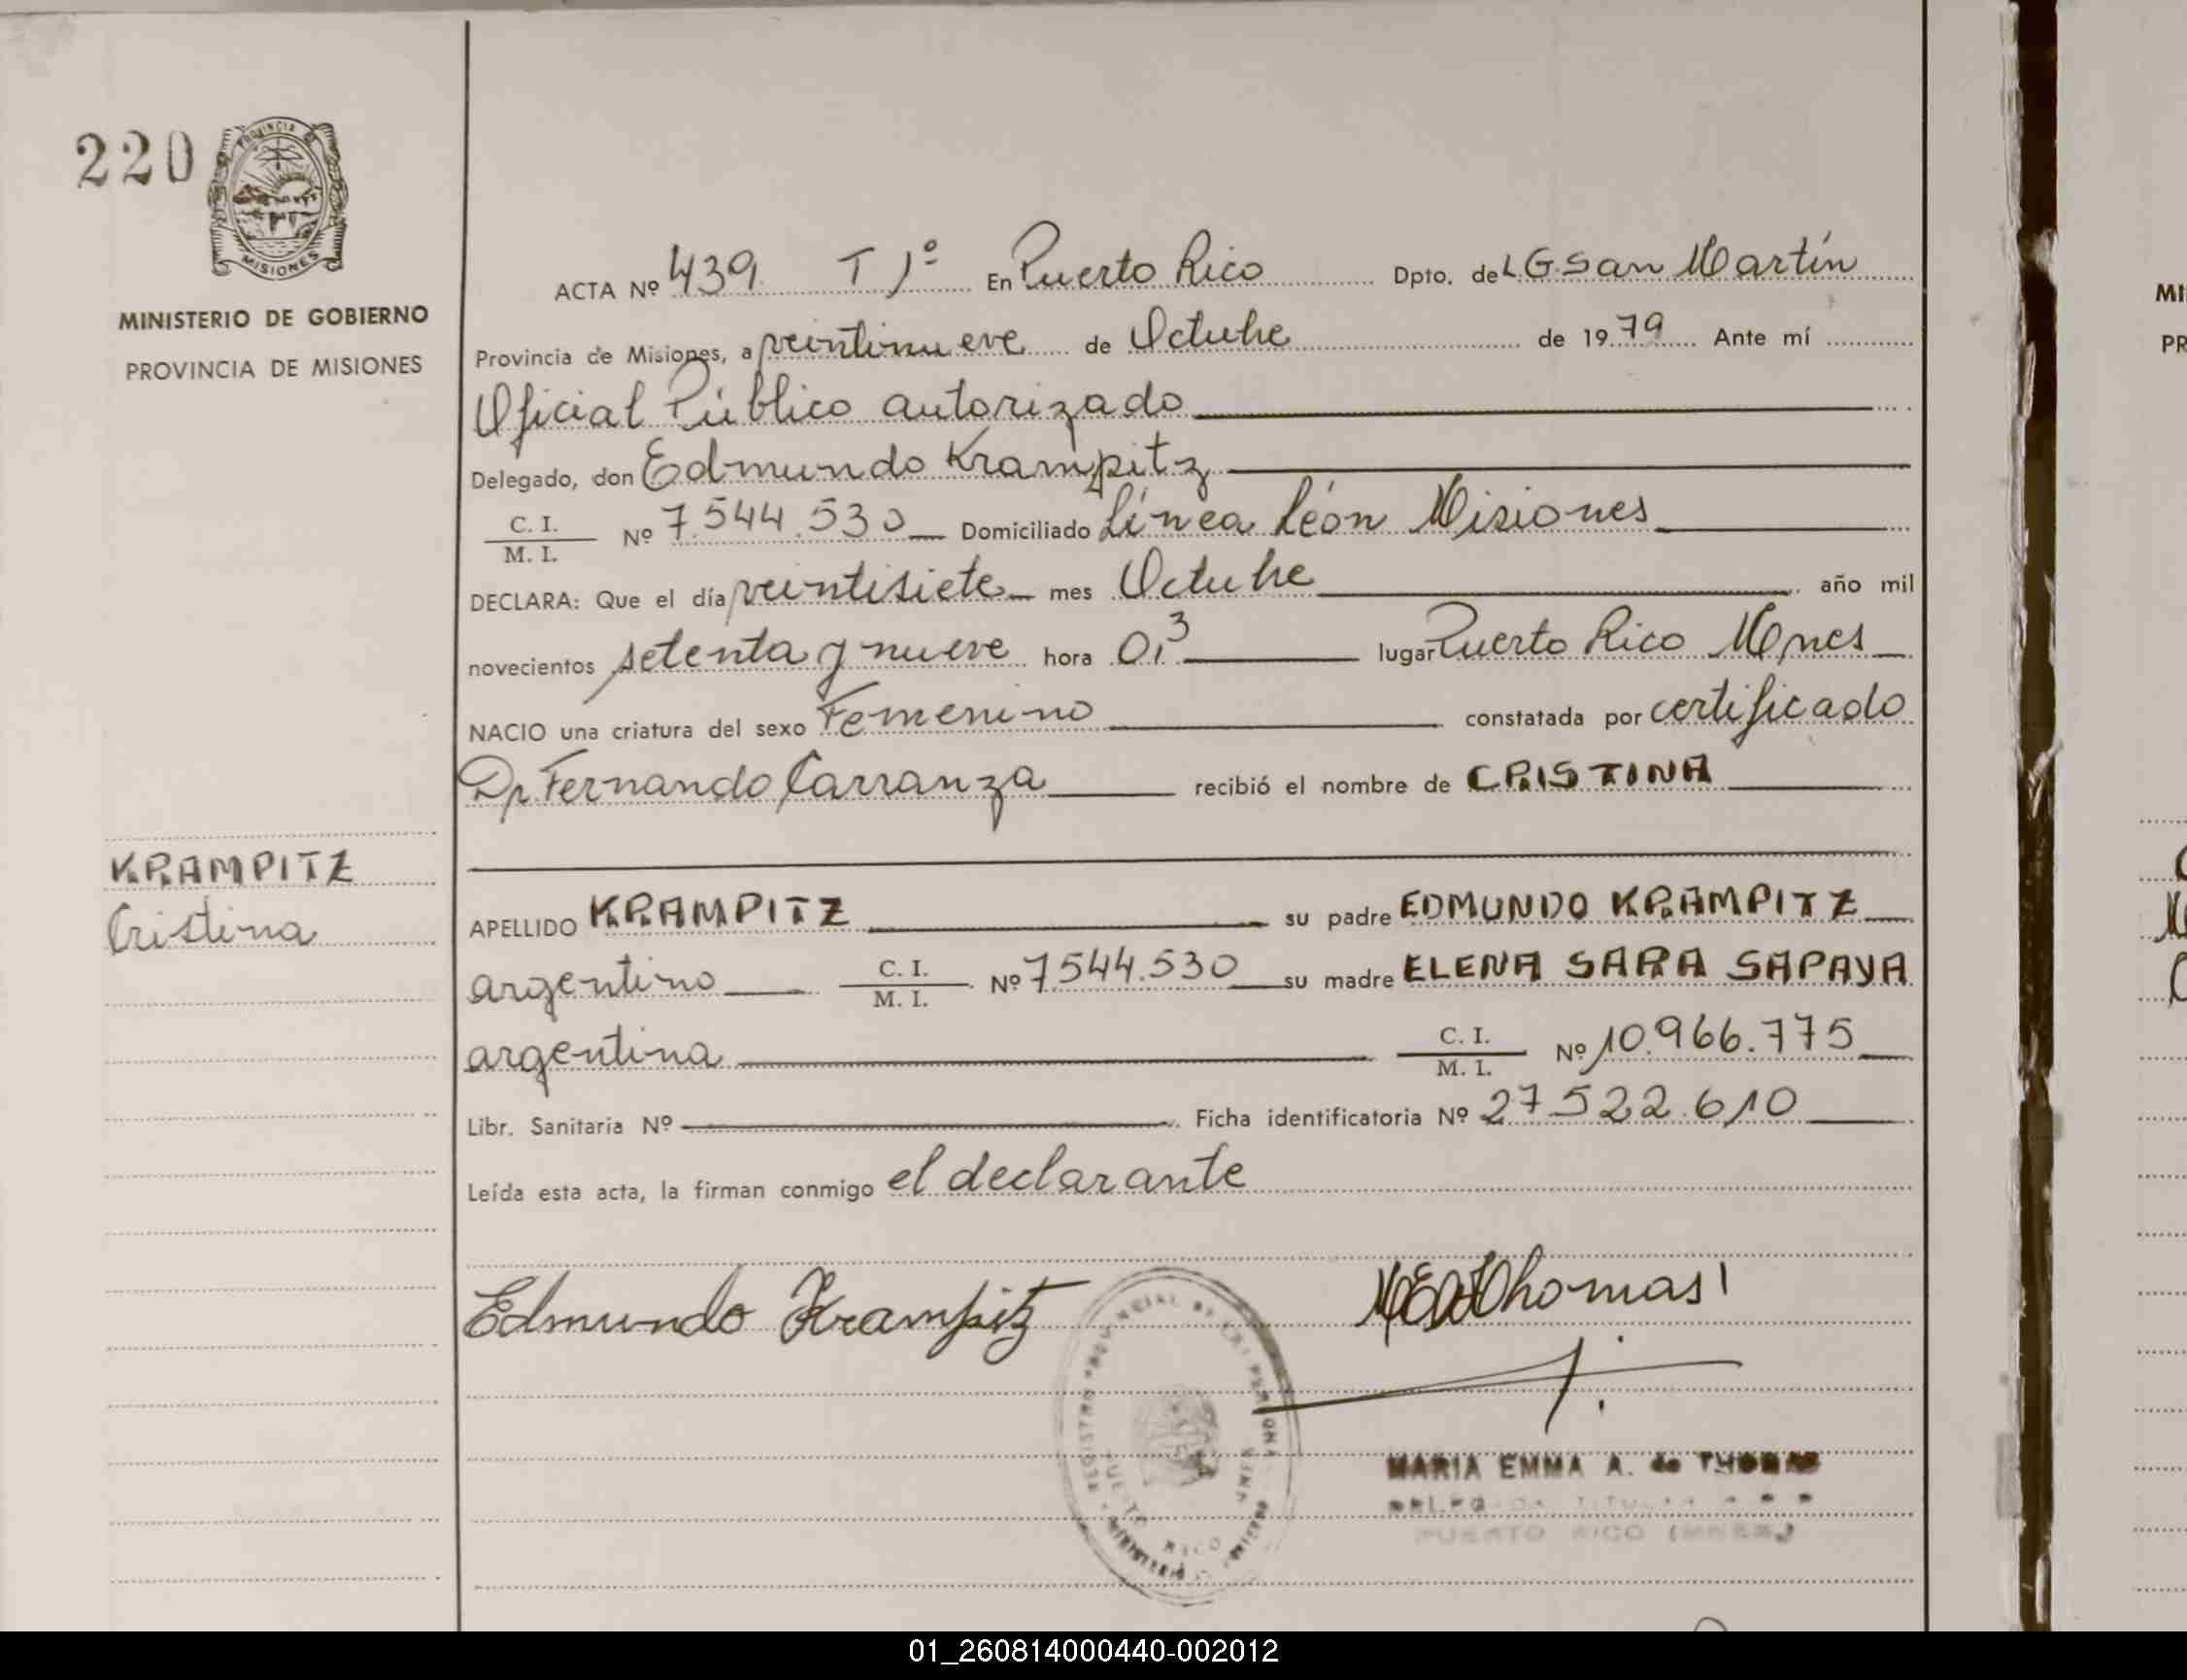 220
PROVINCIA DE
MISIONES
MINISTERIO DE GOBIERNO
PROVINCIA DE MISIONES
KRAMPITZ
Cristina
ACTA Nº 439 T 1º En Puerto Rico Dpto. de L.G. San Martín
Provincia de Misiones, a veintinueve de Octubre de 1979 Ante mí
Oficial Público autorizado
Delegado, don Edmundo Krampitz
C. I.
M. I. Nº 7.544.530 Domiciliado Línea León Misiones
DECLARA: Que el día veintisiete mes Octubre año mil
novecientos setenta y nueve hora 0,3 lugar Puerto Rico Mnes
NACIO una criatura del sexo Femenino constatada por certificado
Dr. Fernando Carranza recibió el nombre de CRISTINA
APELLIDO KRAMPITZ su padre EDMUNDO KRAMPITZ
argentino C. I. M. I. Nº 7.544.530 su madre ELENA SARA SAPAYA
argentina C. I. M. I. Nº 10.966.775
Libr. Sanitaria Nº Ficha identificatoria Nº 27.522.610
Leída esta acta, la firman conmigo el declarante
Edmundo Krampitz
Thomas
MARIA EMMA A. de THOMAS
PUERTO RICO (MNES)
REGISTRO PROVINCIAL DE LAS PERSONAS
PUERTO RICO
MINISTERIO
MI
PR
01_260814000440-002012